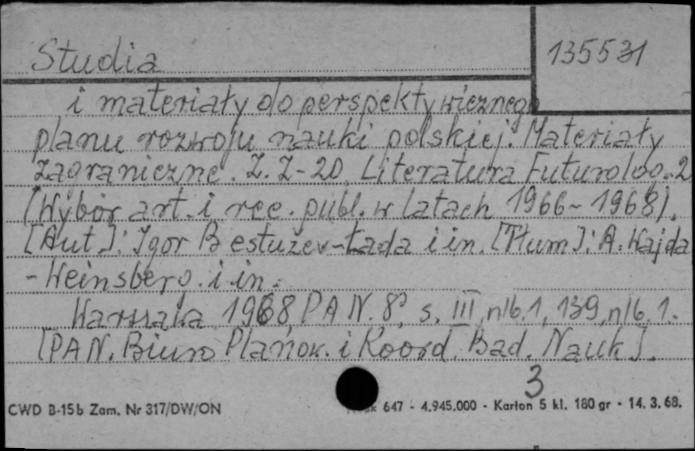 Studia
135531
i materiały do perspektywicznego
planu rozwoju nauki polskiej. Materiały
zagraniczne. Z. Z-20 Literatura Futurolog. 2
(Wybór art. i rec. publ. w latach 1966-1968).
[Aut.]: Igor Bestużev-Łada i in. [Tłum]: A. Wajda
-Weinsberg. i in.
Warszawa 1968 PAN. 8°, s. III, nlb. 1, 139, nlb. 1.
[PAN. Biuro Planow. i Koord. Bad. Nauk].
3
CWD B-15b Zam. Nr 317/DW/ON
647 - 4.945.000 - Karton 5 kl. 180 gr - 14. 3. 68.